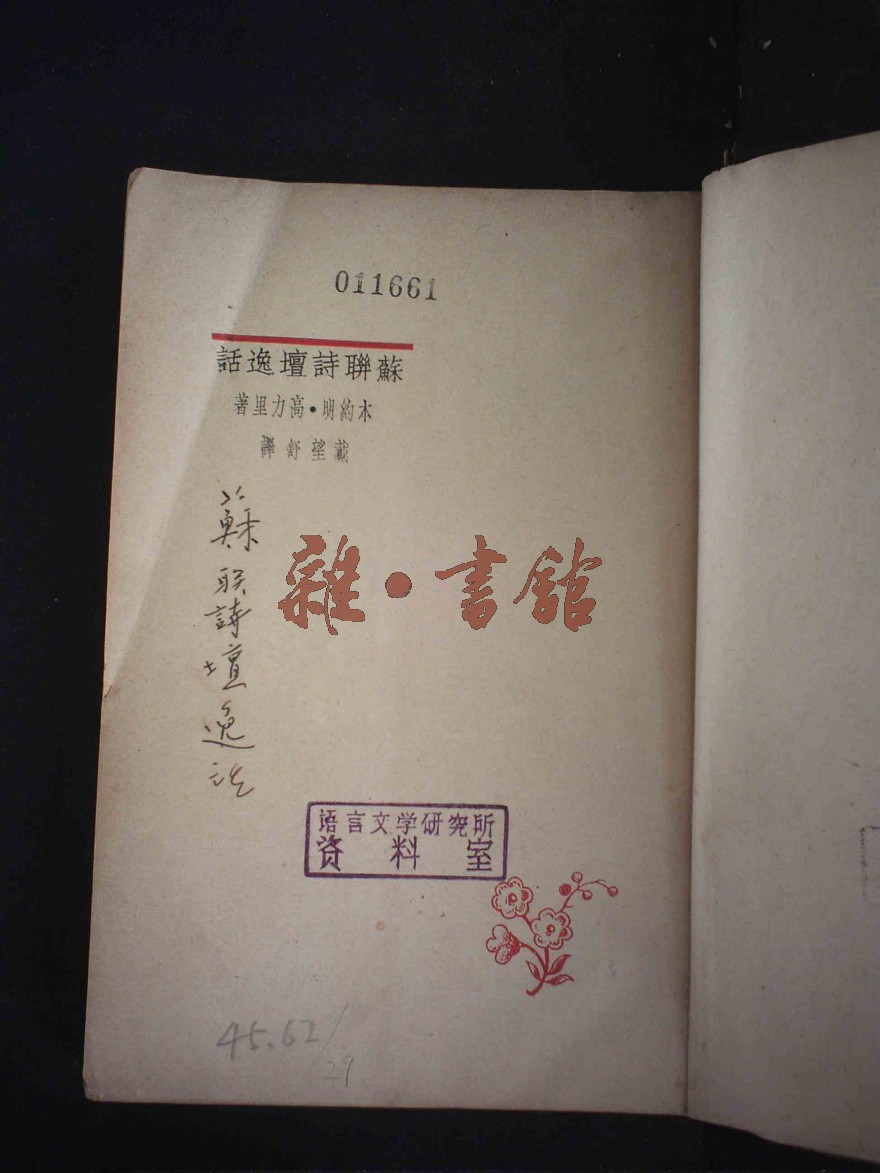 011661
蘇聯詩壇逸話
本約明·高力里著
戴望舒譯
蘇联詩壇逸话
雜·書館
语言文学研究所
资料室
45.62/
29